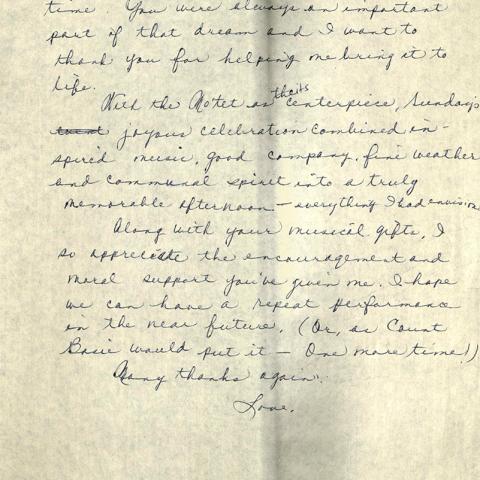 time. You were always an important
part of that dream and I want to
thank you for helping me bring it to
life.
With the Motet as thats centerpiece, Sunday's
joyous celebration combined in-
spired music, good company, fine weather
and communal spirit into a truly
memorable afternoon — everything I had envision
Along with your musical gifts, I
so appreciate the encouragement and
moral support you've given me. I hope
we can have a repeat performance
in the near future. (Or, as Count
Basie would put it — One more time!)
Many thanks again.
Love,